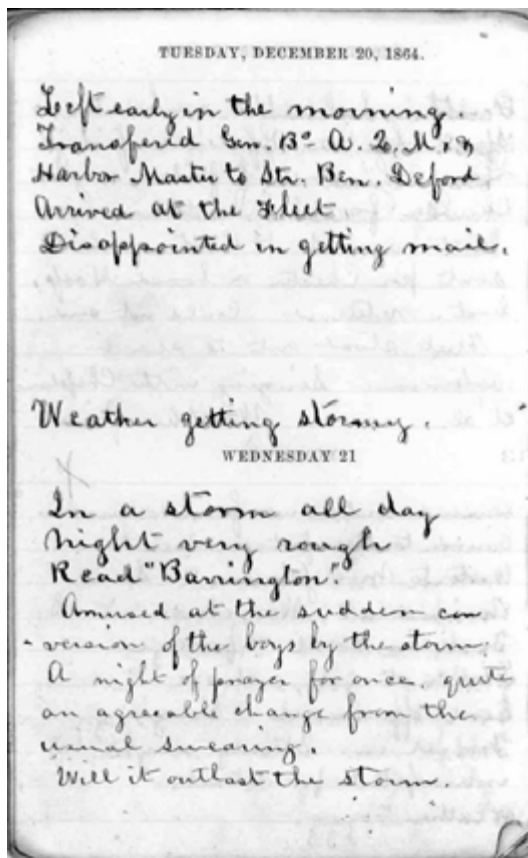 TUESDAY, DECEMBER 20, 1864.
Left early in the morning.
Transfered Gen. Bo A. Q. M. &
Harbor Master to Str. Ben. Deford
Arrived at the Fleet
Disappointed in getting mail.
Weather getting stormy.
WEDNESDAY 21
In a storm all day
night very rough
Read "Barrington".
Amused at the sudden con
version of the boys by the storm.
A night of prayer for once quite
an agreeable change from the
usual swearing.
Will it outlast the storm.